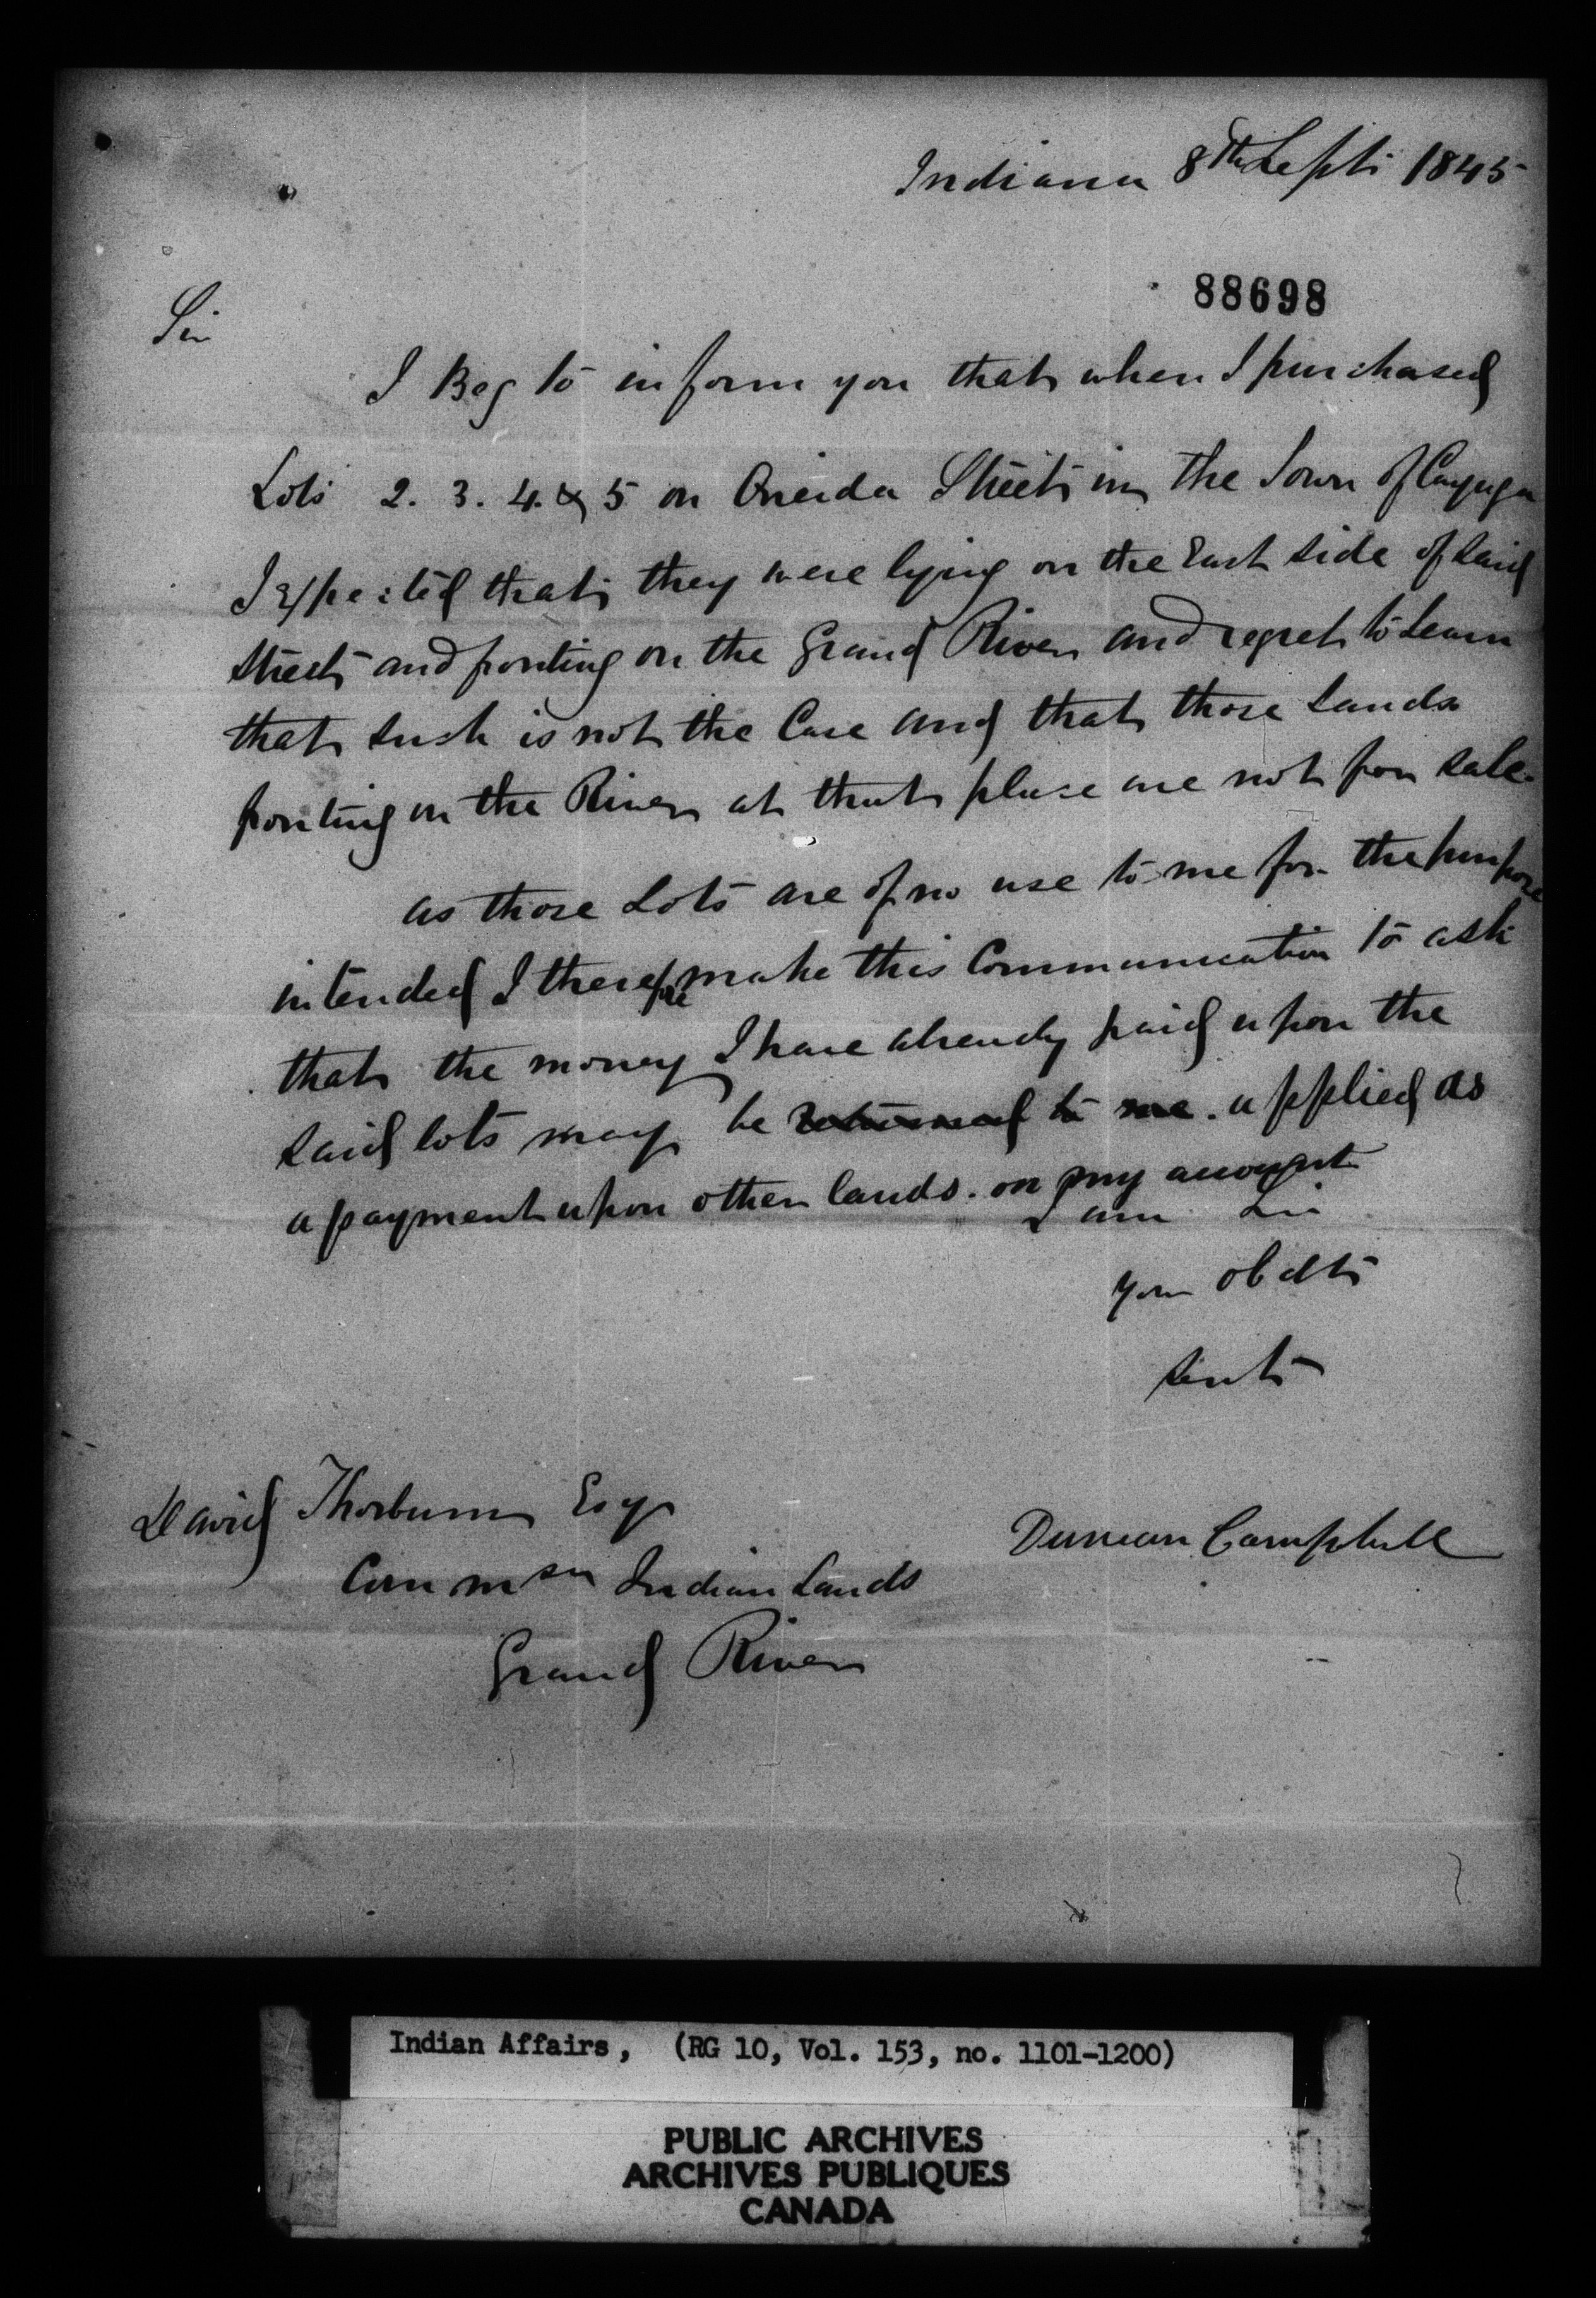 Indiana 8th Sept 1845
88698
Sir
I Beg to inform you that when I purchased
Lots 2. 3. 4. & 5 on Oneida Street in the Town of Cayuga
I Expected that they were lying on the East side of said
Street and fronting on the Grand River and regret to Learn
that such is not the Case and that those Lands
fronting on the River at that place are not for sale.
as those Lots are of no use to me for the purpose
intended I therefore make this Communication to ask
that the money I have already paid upon the
said lots may be returned to me. applied as
a payment upon other lands. on my account
I am Sir
your obdt
Servt
David Thorburn Esqr
Duncan Campbell
Commsr Indian Lands
Grand River
Indian Affairs, (RG 10, Vol. 153, no. 1101-1200)
PUBLIC ARCHIVES
ARCHIVES PUBLIQUES
CANADA